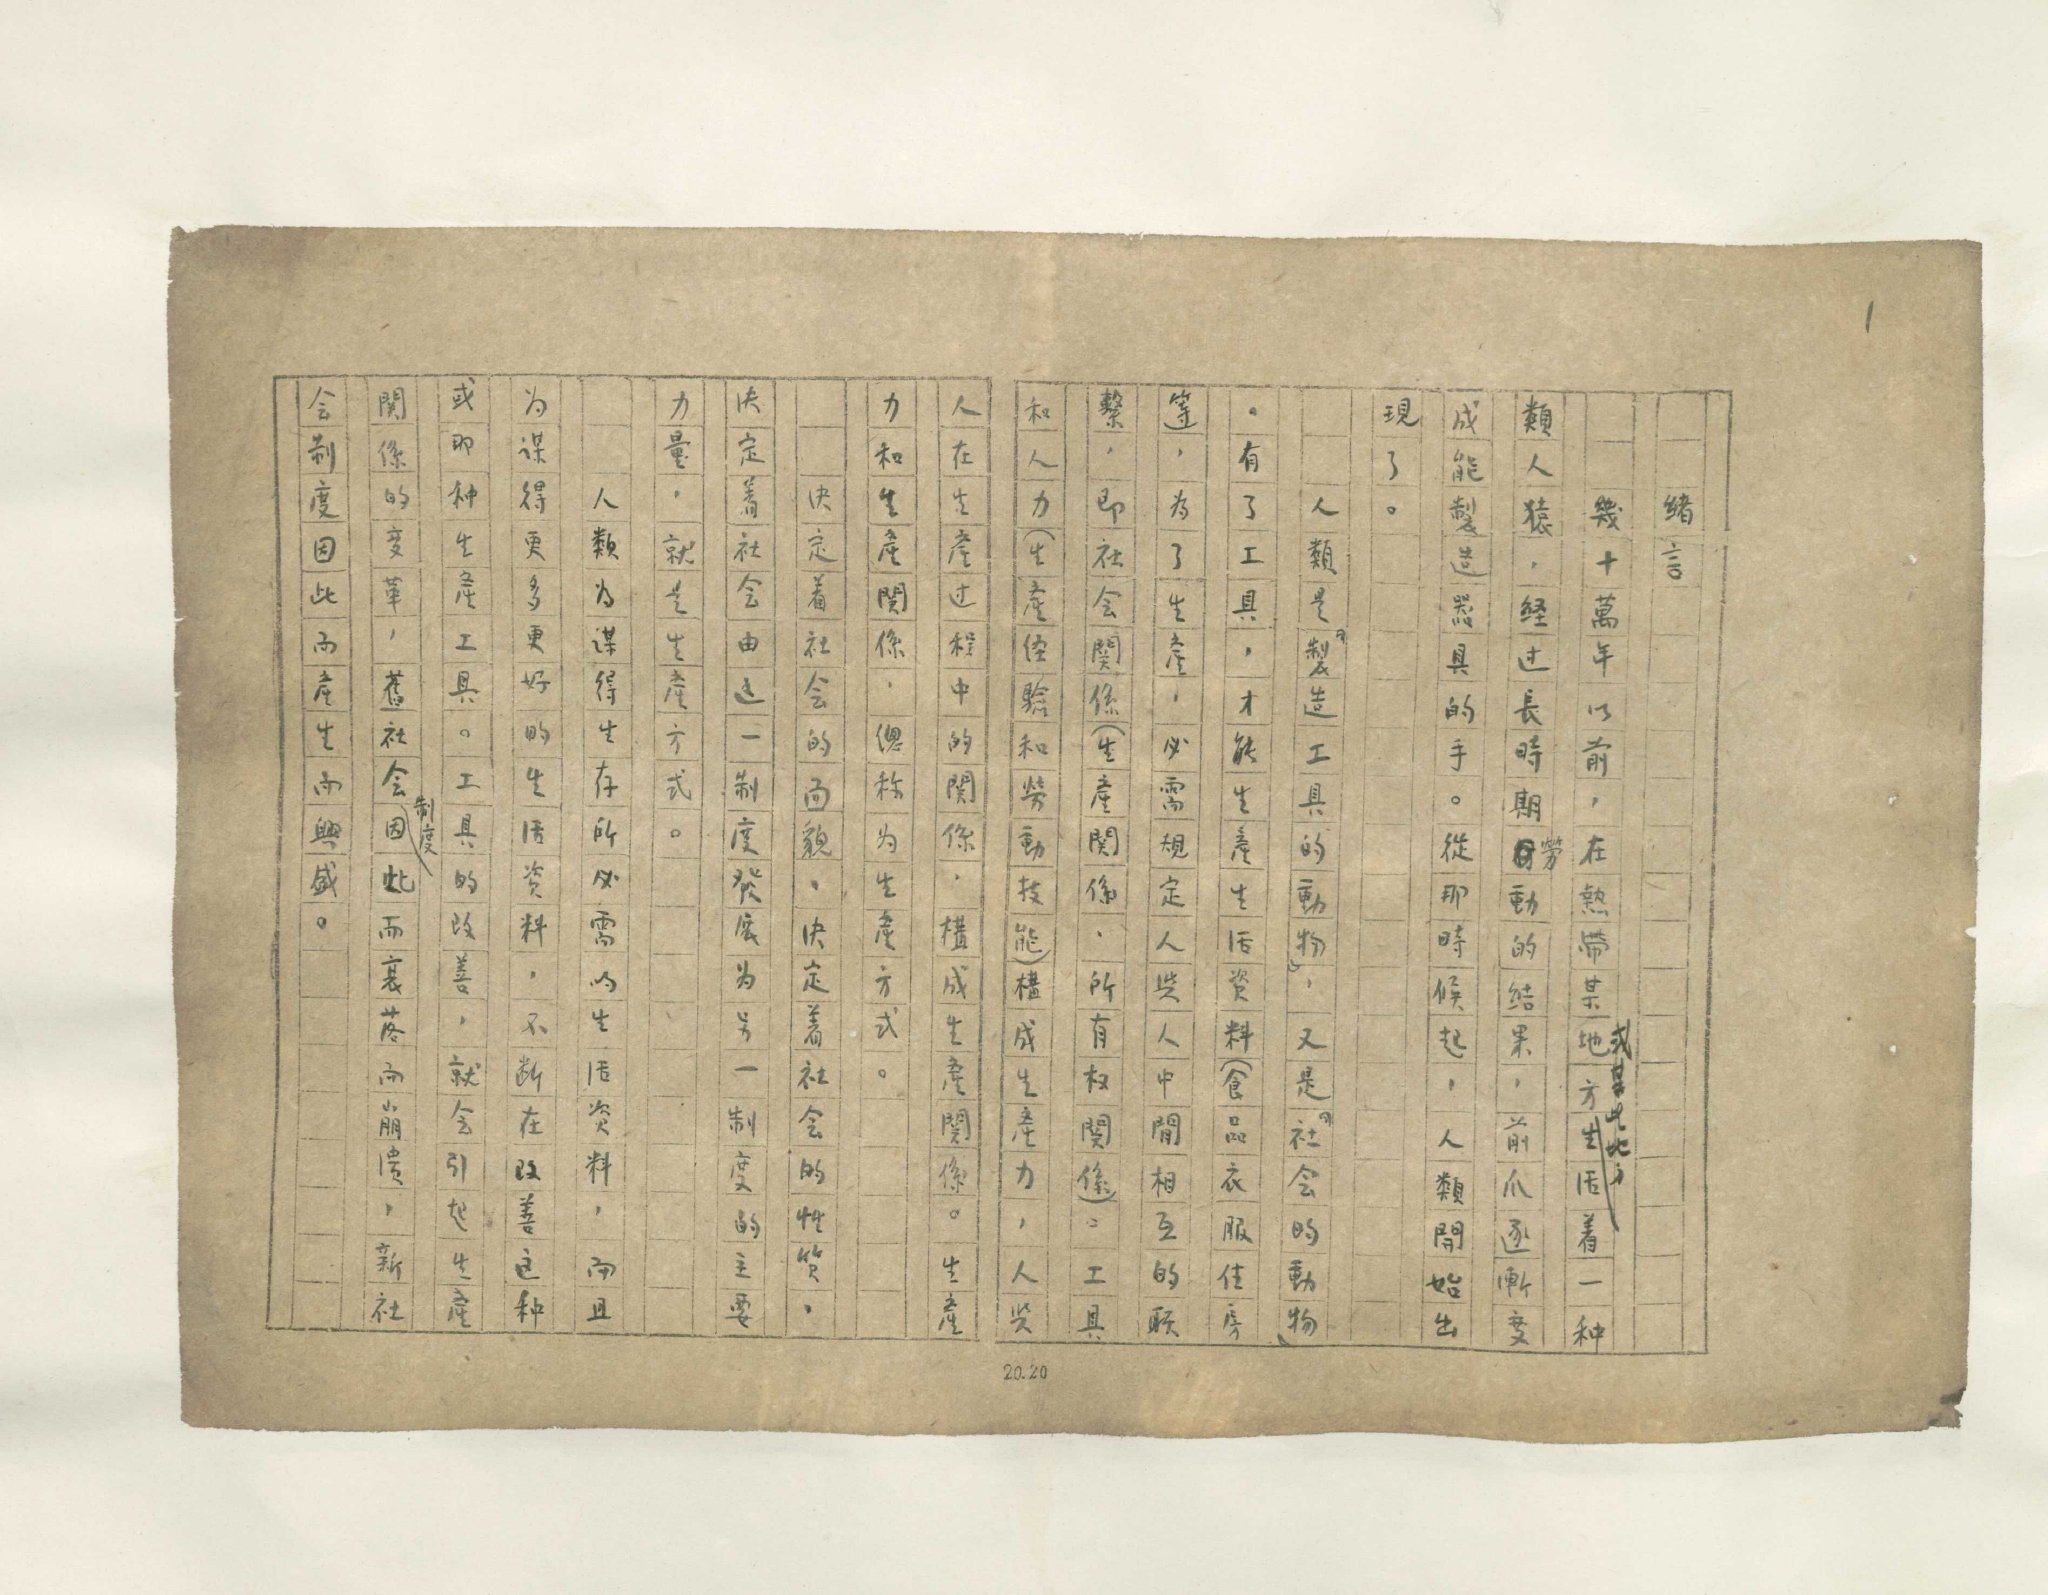 1
緒言
幾十萬年以前，在熱帶某地方或某些地方生活着一种
類人猿，経过長時期勞動的结果，前爪逐漸变
成能製造器具的手。從那時候起，人類開始出
現了。
人類是“製造工具的動物”，又是“社会的動物”
。有了工具，才能生產生活资料（食品衣服住房
等），为了生產，必需規定人与人中間相互的联
繫，即社会関係（生產関係，所有权関係）。工具
和人力（生產经驗和勞動技能）構成生產力，人与
人在生產过程中的関係，構成生產関係。生產
力和生產関係，總称为生產方式。
决定着社会的面貌，决定着社会的性質，
决定着社会由这一制度發展为另一制度的主要
力量，就是生產方式。
人類为謀得生存所必需的生活资料，而且
为谋得更多更好的生活资料，不断在改善这种
或那种生產工具。工具的改善，就会引起生產
関係的变革，舊社会制度因此而衰落而崩溃，新社
会制度因此而產生而興盛。
20.20